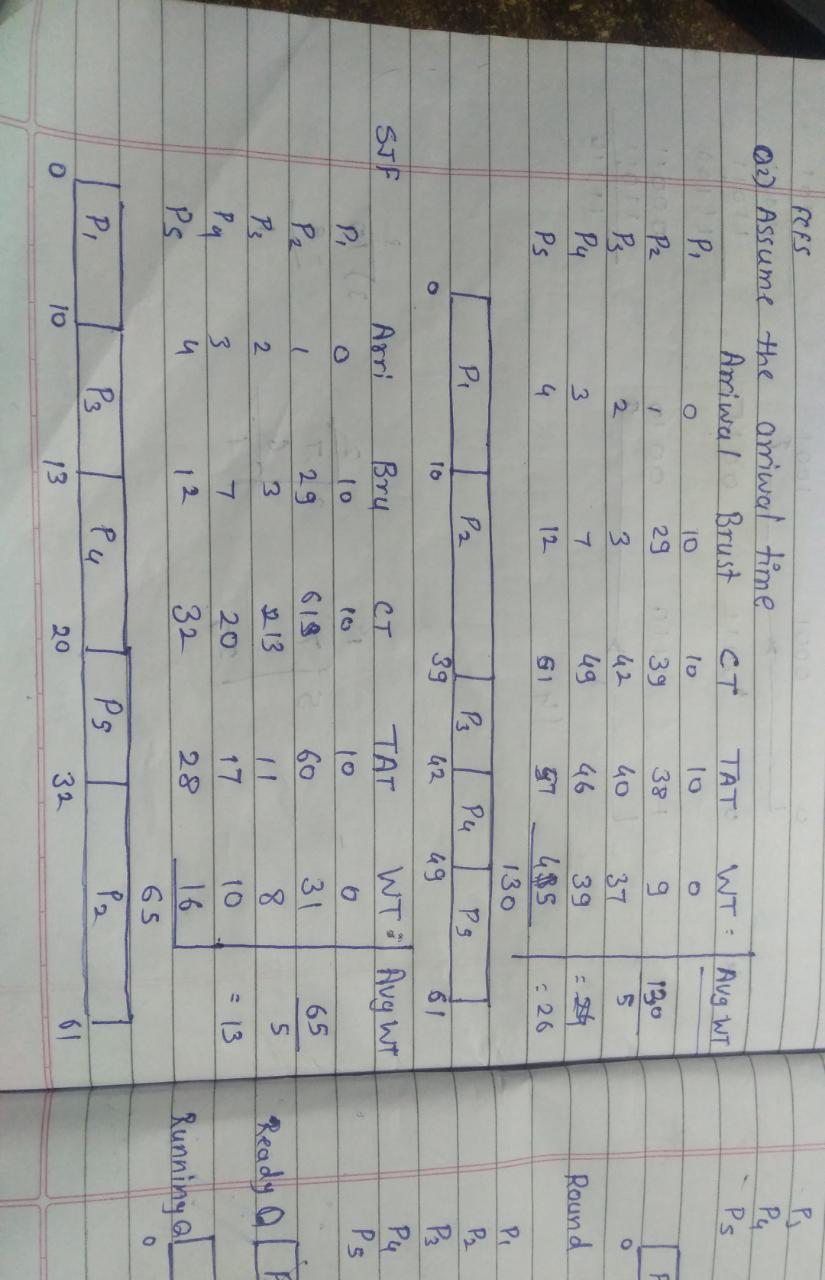 FCFS
Q2) Assume the arriwal time
Arriwal Brust CT TAT WT: Avg WT
P1 0 10 10 10 0
P2 1 29 39 38 9 130
P3 2 3 42 40 37 5
P4 3 7 49 46 39 =
P5 4 12 61 57 45 = 26
130
P1 P2 P3 P4 P5
0 10 39 42 49 61
SJF Arri Bru CT TAT WT: Avg WT
P1 0 10 10 10 0
P2 1 29 61 60 31 65
P3 2 3 13 11 8 5
P4 3 7 20 17 10 = 13
P5 4 12 32 28 16
65
P1 P3 P4 P5 P2
0 10 13 20 32 61
P3
P4
P5
0
Round
P1
P2
P3
P4
P5
Ready Q
Running Q
0